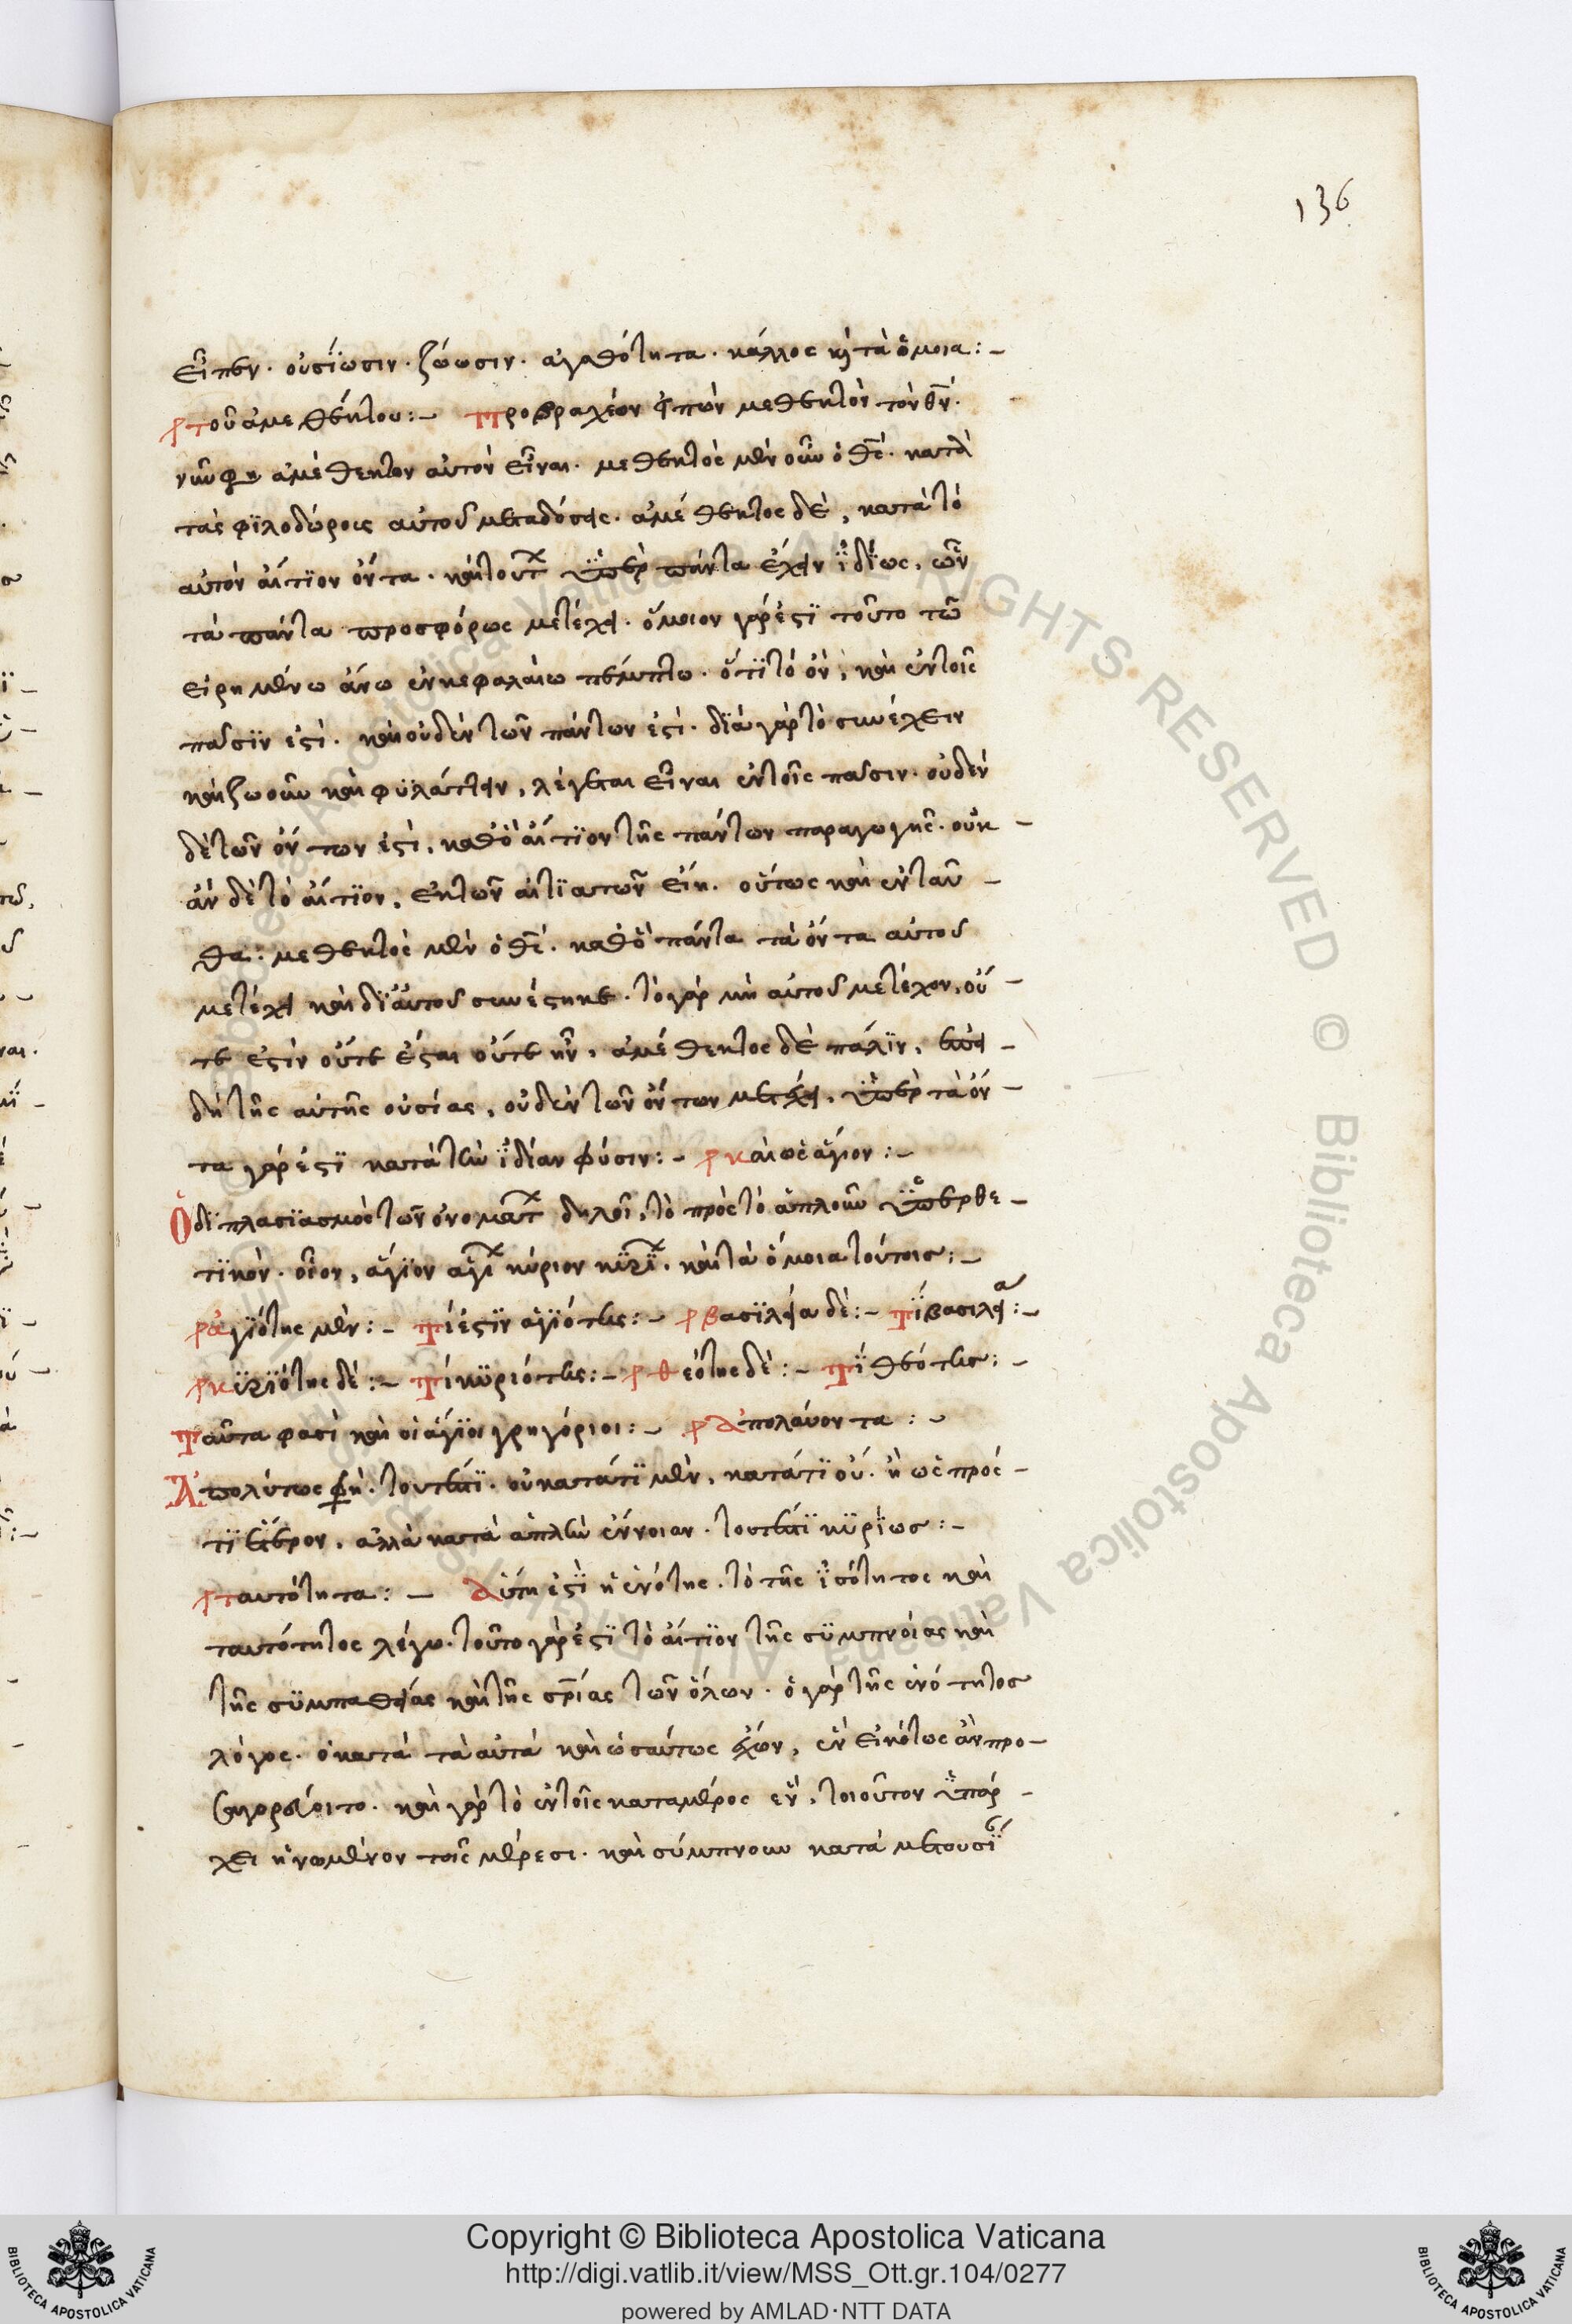 136
εἶπεν. οὐσίωσιν. ζώωσιν. ἀγαθότητα. κάλλος κ̀ τὰ ὅμοια:–
τοῦ ἀμεθέκτου:– Πρὸ βραχέων εἰπὼν μεθεκτὸν τὸν θν̄.
νῦν φη ἀμέθεκτον αὐτὸν εἶναι. μεθεκτὸς μὲν οὖν ὁ θς̄. κατὰ
τὰς φϊλοδώροις αὐτοῦ μεταδόσεις. ἀμέθεκτος δὲ, κατὰ τὸ
αὐτὸν αἴτϊον ὄντα. καὶ τούτ ϋπὲρ πάντα ἔχειν ϊδίως, ὧν
τὰ πάντα προσφόρως μετέχει. ὅμοιον γάρ ἐστϊ τοῦτο τῶ
εἰρημένω ἄνω ἐν κεφαλαίω πέμπτω. ὅτϊ τὸ ὂν, καὶ ἐν τοῖς
πᾶσϊν ἐστὶ. καὶ οὐδὲν τῶν πάντων ἐστί. δϊὰ γὰρ τὸ συνέχειν
καὶ ζωοῦν καὶ φϋλάττειν, λέγεται εἶναι ἐν τοῖς πᾶσιν. οὐδὲν
δὲ τῶν ὄντων ἐστὶ, καθὸ αἴτϊον τῆς πάντων παραγωγῆς. οὐκ –
ἂν δὲ τὸ αἴτϊον, ἐκ τῶν αἰτϊατῶν εἴη. οὕτως καὶ ἐνταῦ –
θα: μεθεκτὸς μὲν ὁ θς̄. καθὸ πάντα τὰ ὄντα αὐτοῦ
μετέχει καὶ δϊ αὐτοῦ συνέστηκε. τὸ γὰρ μὴ αὐτοῦ μετέχον, οὔ –
τε ἐστὶν οὔτε ἔσται οὔτε ἦν. ἀμέθεκτος δὲ πάλϊν, ἐπει –
δὴ τῆς αὐτῆς οὐσίας, οὐδὲν τῶν ὄντων μετέχει. ϋπὲρ τὰ ὄν –
τα γάρ ἐστϊ κατὰ τὴν ϊδίαν φύσιν:– καὶ ὡς ἅγιον:–
Ὁ δϊπλασϊασμὸς τῶν ὀνομάτ δηλοῖ, τὸ πρὸς τὸ ἁπλοῦν ϋπερθε –
τϊκόν. οἷον, ἅγϊον ἁγϊ κύριον κϋρϊ. καὶ τὰ ὅμοια τούτοις:–
ἁγϊότης μὲν:– Τί ἐστϊν ἁγϊότης:– βασϊλεία δὲ:– Τί βασιλεία:–
κϋρϊότης δὲ:– Τί κϋριότης:– θεότης δὲ:– Τί θεότης:–
Ταῦτα φασὶ καὶ οἱ ἅγϊοι γρηγόριοι:– ἀπολάυοντα:–
Ἀπολύτως φη. τουτέστϊ. οὐ κατά τϊ μὲν, κατά τϊ οὔ. ἢ ὡς πρός –
τϊ ἕτερον, ἀλλὰ κατὰ ἁπλὴν ἔννοιαν. τουτέστϊ κϋρϊως:–
ταυτότητα:– Αὕτη ἐστϊ ἡ ἑνότης. τὸ τῆς ϊσότητος καὶ
ταυτότητος λέγω. τοῦτο γάρ ἐστϊ τὸ αἴτϊον τῆς σϋμπνοίας καὶ
τῆς σϋμπαθείας καὶ τῆς σρ̄ίας τῶν ὅλων. ὁ γὰρ τῆς ἑνότητος
λόγος. ὁ κατὰ τὰ αὐτὰ καὶ ὡσαύτως ἔχων, ἓν εἰκότως ἂν προ –
σαγορεύοιτο. καὶ γὰρ τὸ ἐν τοῖς κατα μέρος ἓν, τοιοῦτον ϋπάρ –
χει ἡνωμένον τοῖς μέρεσι. καὶ σύμπνουν κατὰ μετουσί
Copyright © Biblioteca Apostolica Vaticana
http://digi.vatlib.it/view/MSS_Ott.gr.104/0277
powered by AMLAD·NTT DATA
BIBLIOTECA APOSTOLICA VATICANA
BIBLIOTECA APOSTOLICA VATICANA